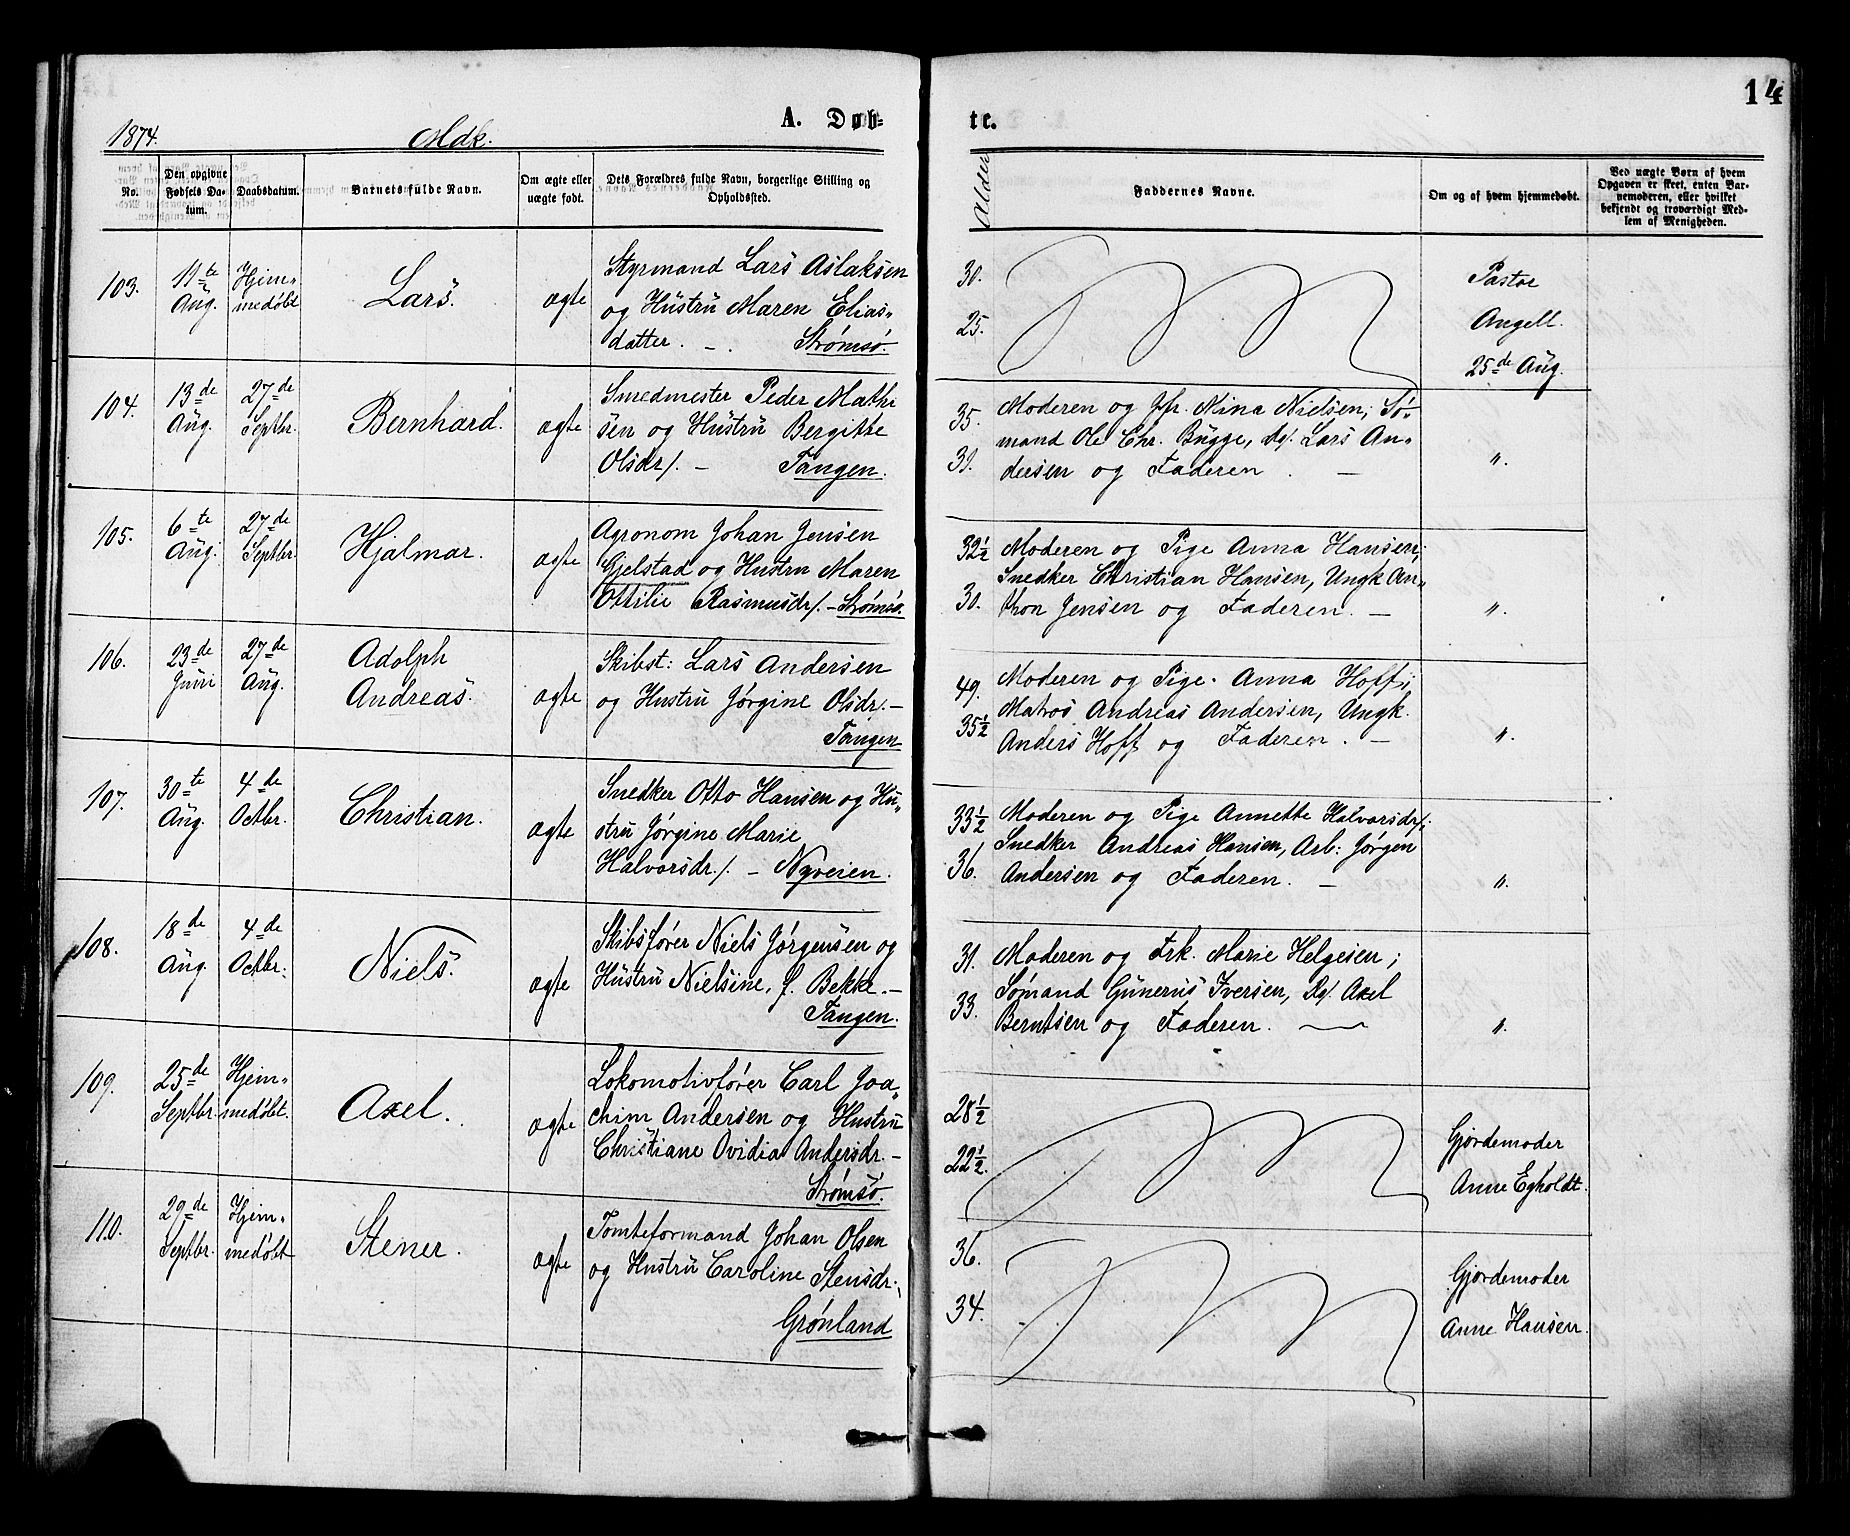 14
1874.
Mdk.
A. Døb-
te.
No.
Den opgivne
Fødsels Da-
tum.
Daabsdatum.
Barnets fulde Navn.
Om ægte eller
uægte født.
Dets Forældres fulde Navn, borgerlige Stilling og
Opholdssted.
Alder
Faddernes Navne.
Om og af hvem hjemmedøbt.
Ved uægte Børn af hvem
Opgaven er skeet, enten Bar-
nemoderen, eller hvilket
bekjendt og troværdigt Med-
lem af Menigheden.
103.
11te
Aug.
Hjem-
medøbt
Lars.
ægte
Styrmand Lars Aslaksen
og Hustru Maren Elias-
datter. – . Strømsø.
30.
25.
Pastor
Angell
25de Aug.
104.
13de
Aug.
27de
Septbr.
Bernhard.
ægte
Smedmester Peder Mathi
sen og Hustru Bergitte
Olsdr/. – Tangen.
35.
39.
Moderen og Jfr. Mina Nielsen; Sø-
mand Ole Chr. Bugge, Lars An-
dersen og Faderen . –
"
105.
6te
Aug.
27de
Septbr.
Hjalmar.
ægte
Agronom Johan Jensen
Gjelstad og Hustru Maren
Ottilie Rasmusdr/. – Strømsø.
32½
30.
Moderen og Pige Anna Hansen;
Snedker Christian Hansen, Ungk An-
thon Jensen og Faderen. –
"
106.
23de
Juni
27de
Aug.
Adolph
Andreas.
ægte
Skibst: Lars Andersen
og Hustru Jørgine Olsdr/. –
Tangen
49.
35½
Moderen og Pige Anna Hoff;
Matros Andreas Andersen, Ungk.
Anders Hoff og Faderen. –
"
107.
30te
Aug.
4de
Octbr.
Christian.
ægte
Snedker Otto Hansen og Hu-
stru Jørgine Marie
Halvorsdr/. – Nyveien.
33½
36.
Moderen og Pige Annette Halvorsdr/;
Snedker Andreas Hansen, Arb: Jørgen
Andersen og Faderen. –
"
108.
18de
Aug.
4de
Octbr.
Niels.
ægte
Skibsfører Niels Jørgensen og
Hustru Nielsine, f. Bekke. –
Tangen.
31.
33.
Moderen og Frk. Marie Helgesen;
Sømand Gunerius Iversen, Axel
Berntsen og Faderen. –
"
109.
25de
Septbr.
Hjem-
medøbt.
Axel.
ægte
Lokomotivfører Carl Joa-
chim Andersen og Hustru
Christiane Ovidia Andersdr. –
Strømsø.
28½
22½.
Gjordemoder
Anne Egholdt.
110.
29de
Septbr.
Hjem-
medøbt
Stener.
ægte
Tomteformand Johan Olsen
og Hustru Caroline Stensdr.;
Grønland
36.
34.
Gjordemoder
Anne Hansen.